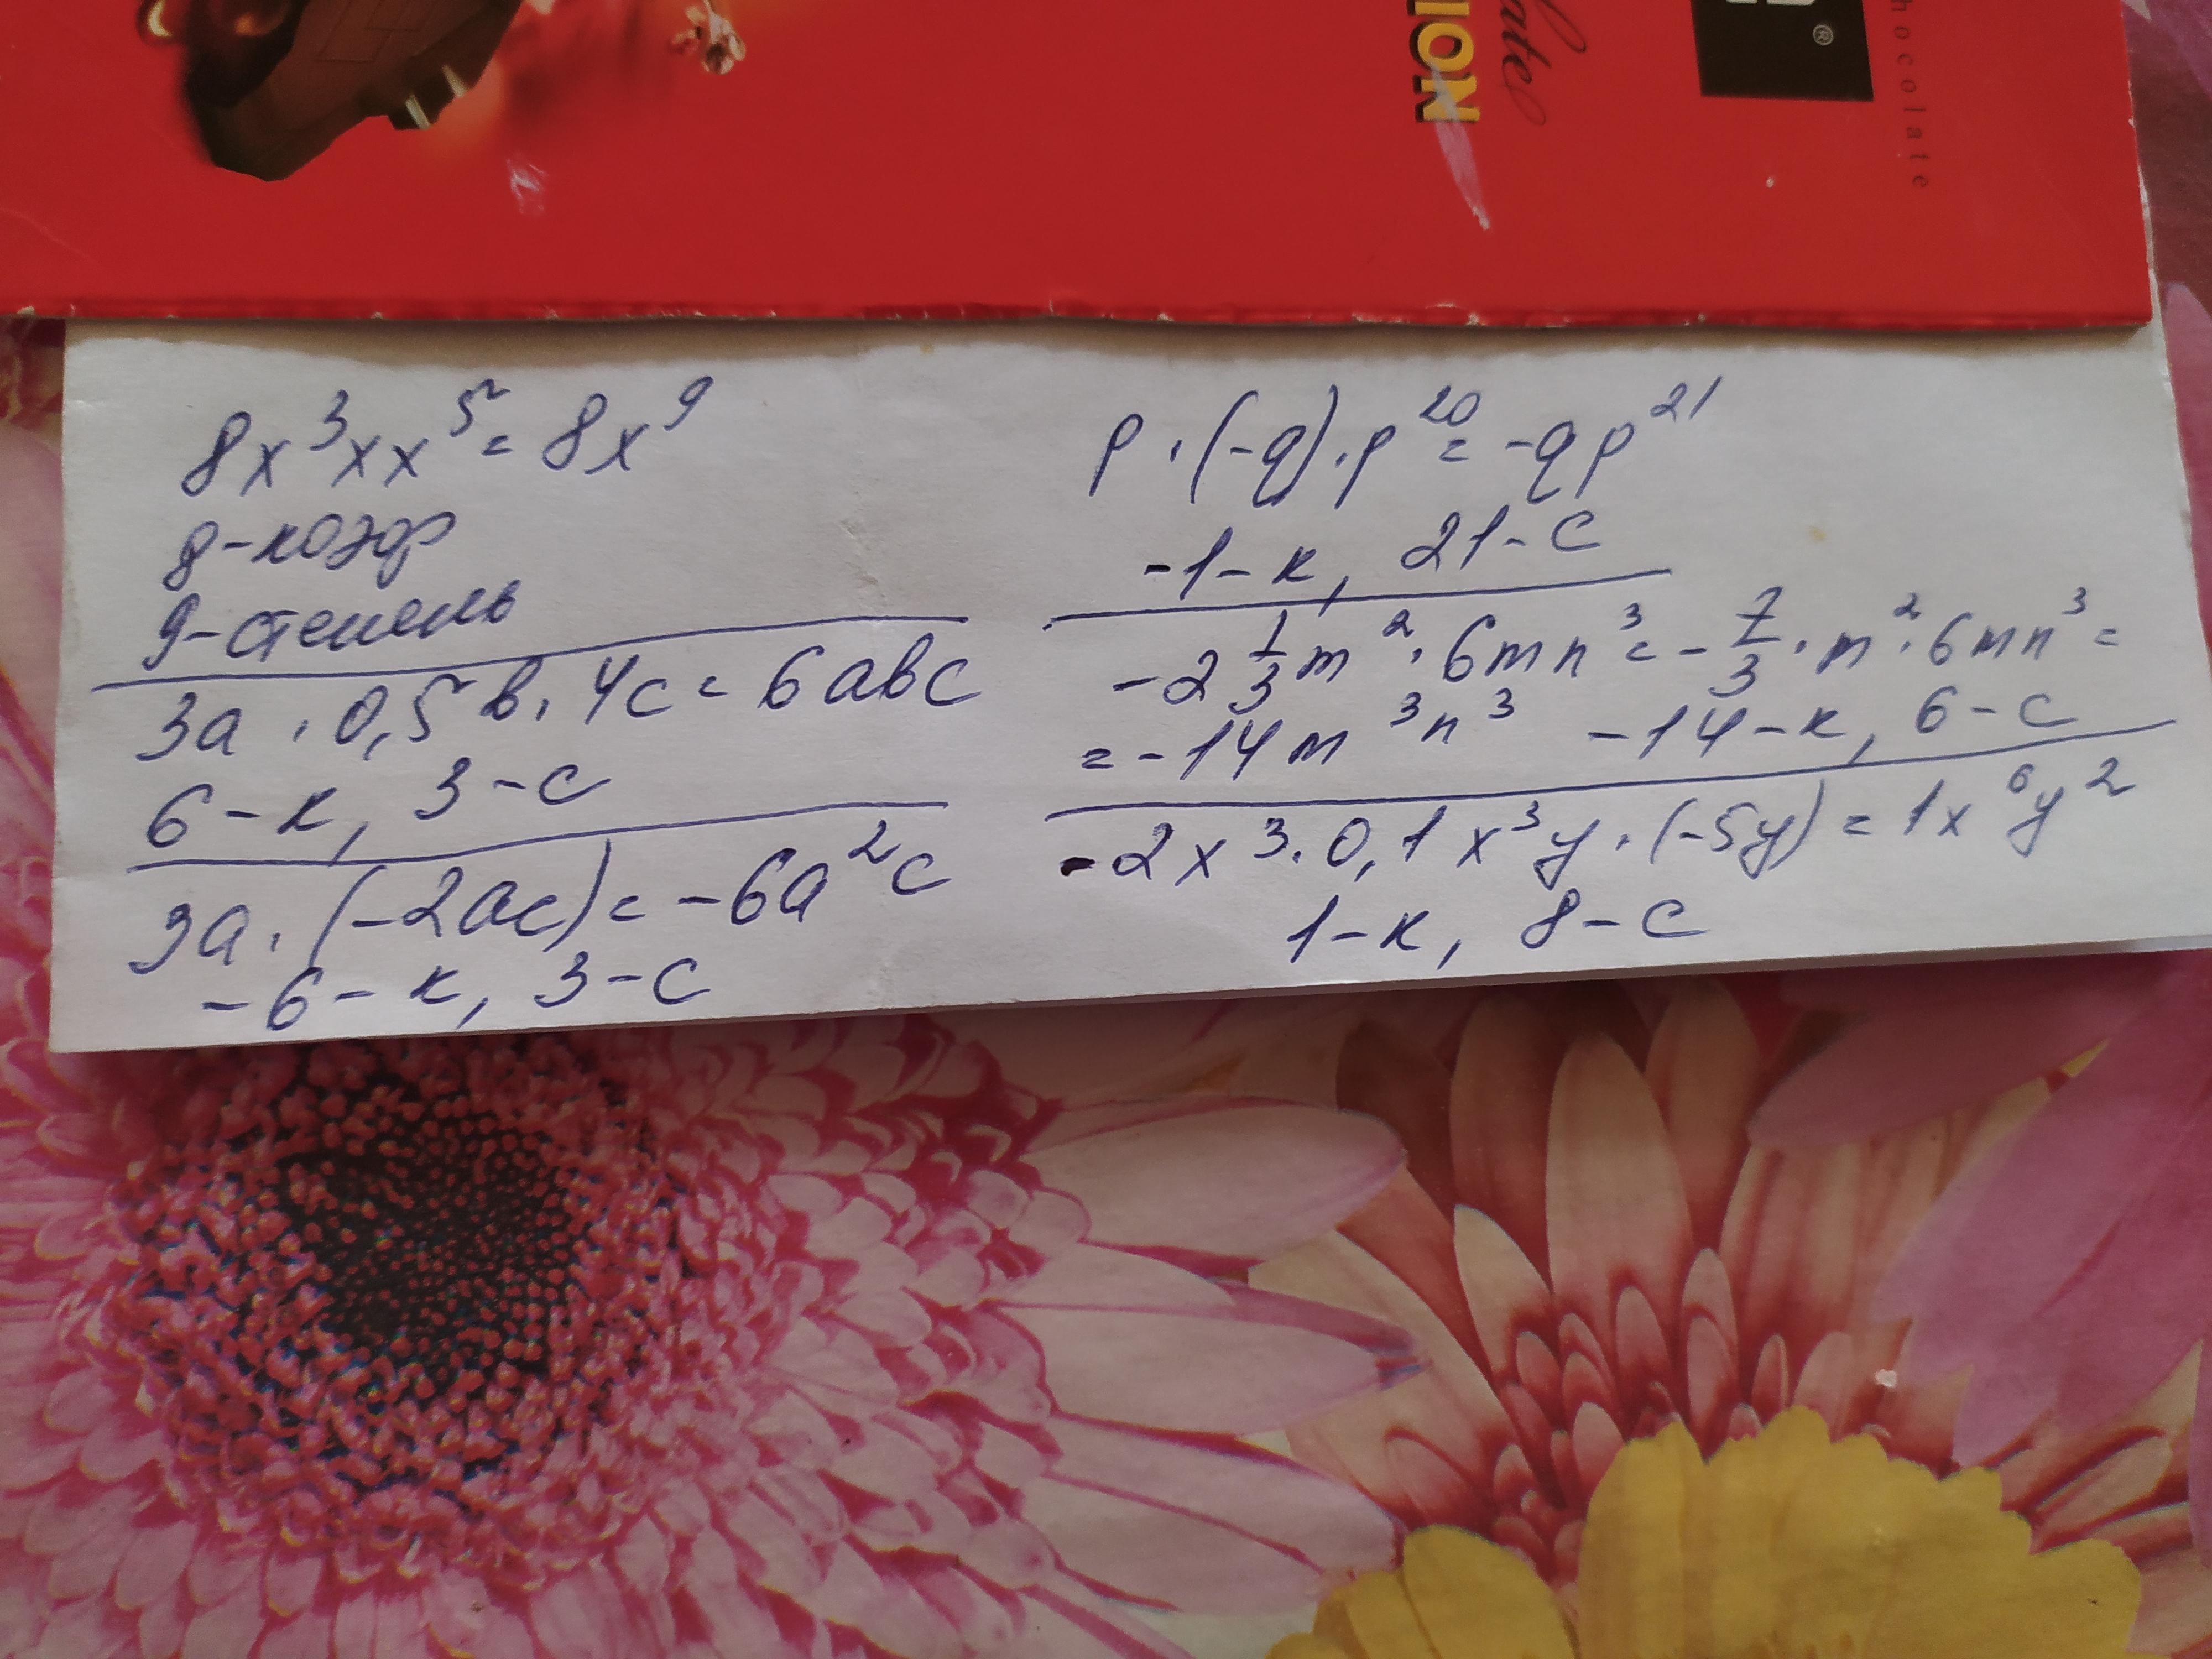 ION
ate
®
hocolate
8x³xx⁵ = 8x⁹
8-коэф
9-степень
3a · 0,5в · 4c = 6авс
6-к, 3-с
3a · (-2ac) = -6a²c
-6-к, 3-с
p · (-q) · p²⁰ = -qp²¹
-1-к, 21-с
-2 1/3 m² · 6mn³ = -7/3 · m² · 6mn³ =
= -14m³n³ -14-к, 6-с
-2x³ · 0,1x³y · (-5y) = 1x⁶y²
1-к, 8-с